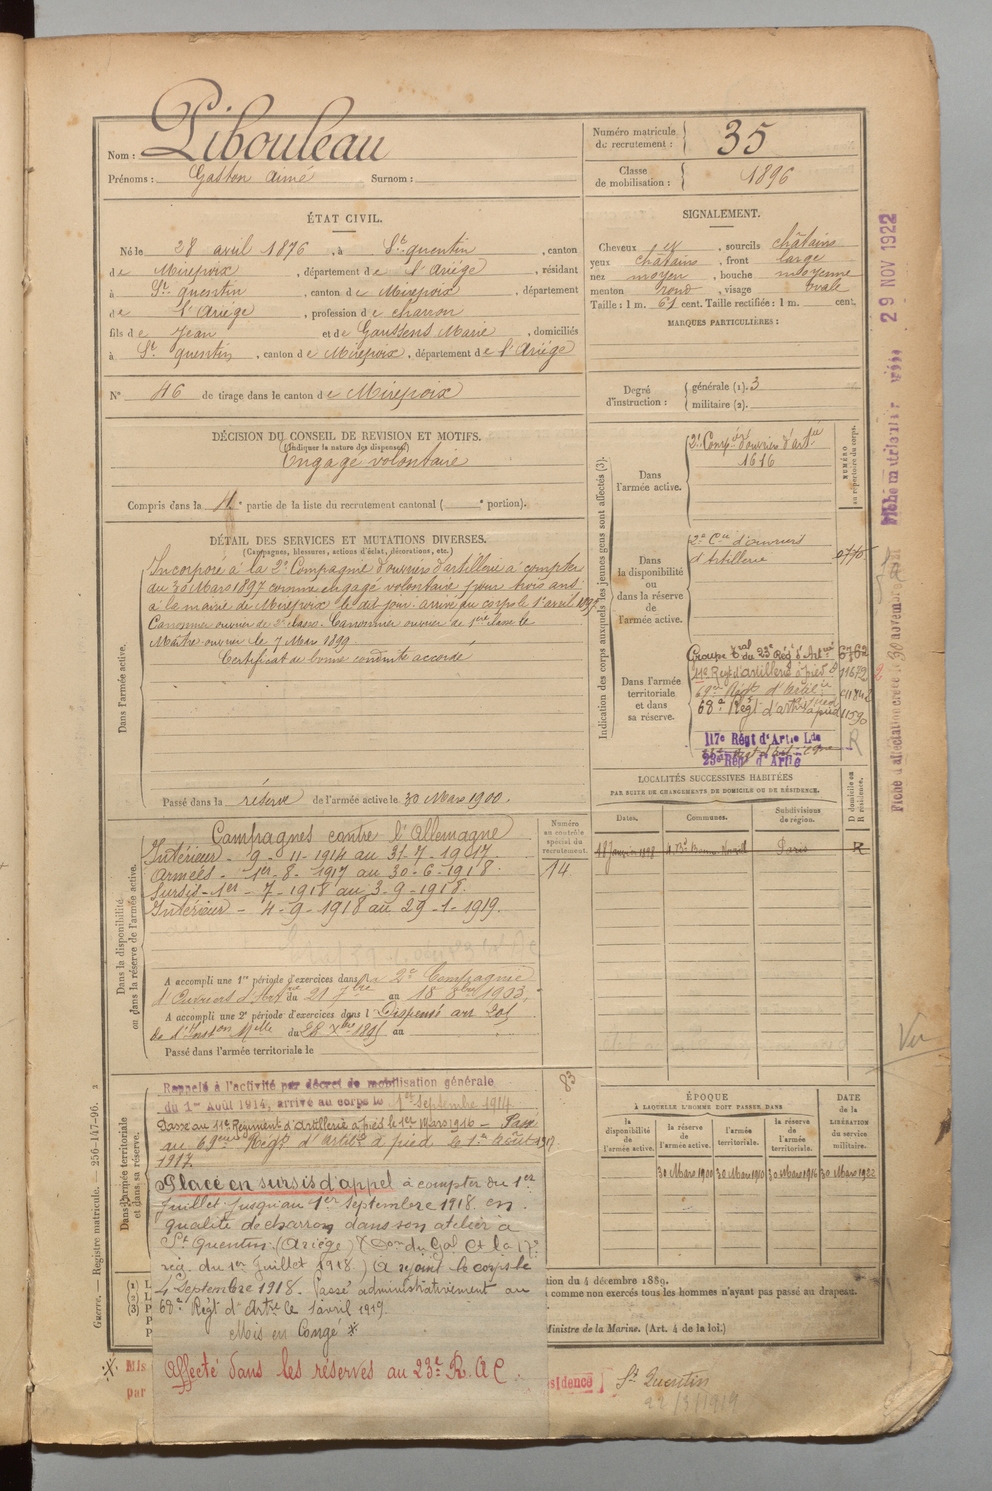 Nom : Pibouleau
Prénoms : Gaston Aimé Surnom :
Numéro matricule du recrutement : 35
Classe de mobilisation : 1896
ÉTAT CIVIL.
Né le 28 avril 1876, à St quentin, canton
de Mirepoix, département de l'Ariège, résidant
à St quentin, canton de Mirepoix, département
de l'Ariège, profession de charron
fils de Jean et de Gaussens Marie, domiciliés
à St quentin, canton de Mirepoix, département de l'Ariège
N° 46 de tirage dans le canton de Mirepoix
SIGNALEMENT.
Cheveux et, sourcils châtains
yeux châtains, front large
nez moyen, bouche moyenne
menton rond, visage ovale
Taille : 1 m. 61 cent. Taille rectifiée : 1 m. cent.
MARQUES PARTICULIÈRES :
Degré d'instruction :
générale (1). 3
militaire (2).
DÉCISION DU CONSEIL DE REVISION ET MOTIFS.
(Indiquer la nature des dispenses)
Engagé volontaire
Compris dans la 4e partie de la liste du recrutement cantonal ( e portion).
DÉTAIL DES SERVICES ET MUTATIONS DIVERSES.
(Campagnes, blessures, actions d'éclat, décorations, etc.)
Dans l'armée active.
Incorporé à la 2e Compagnie d'ouvriers d'artillerie à compter
du 30 Mars 1897 comme engagé volontaire pour trois ans
à la mairie de Mirepoix le dit jour. arrivé au corps le 1er avril 1897
Canonnier ouvrier de 2e classe. Canonnier ouvrier de 1ère classe le
Maître ouvrier le 7 Mars 1899
Certificat de bonne conduite accordé
Passé dans la réserve de l'armée active le 30 Mars 1900.
Indication des corps auxquels les jeunes gens sont affectés (3).
NUMÉRO au répertoire du corps.
Dans l'armée active.
2e Compie d'ouvriers d'artie
1616
Dans la disponibilité ou dans la réserve de l'armée active.
2e Cie d'ouvriers
d'Artillerie
Dans l'armée territoriale et dans sa réserve.
Groupe tal du 23e Régt d'Artie 6762
11e Régt d'artillerie à pied 11672
69e Régt d'Artie
68e Régt d'artie à pied 11590
117e Régt d'Artie Lde
23e Rég d'Artie
R
Dans la disponibilité ou dans la réserve de l'armée active.
Numéro au contrôle spécial du recrutement.
14
Campagnes contre l'Allemagne
Intérieur - 9 - 11 - 1914 au 31 - 7 - 1917
Armées - 1er - 8 - 1917 au 30 - 6 - 1918.
Sursis - 1er - 7 - 1918 au 3 - 9 - 1918.
Intérieur - 4 - 9 - 1918 au 29 - 1 - 1919.
A accompli une 1re période d'exercices dans la 2e Compagnie
d'Ouvriers d'Artie du 21 7bre au 18 8bre 1903.
A accompli une 2e période d'exercices dans l Dispensé art 201
de l'Inston Melle du 28 Xbre 1895 au
Passé dans l'armée territoriale le
LOCALITÉS SUCCESSIVES HABITÉES
PAR SUITE DE CHANGEMENTS DE DOMICILE OU DE RÉSIDENCE.
D domicile ou R résidence.
Dates. Communes. Subdivisions de région.
Paris R
Dans l'armée territoriale et dans sa réserve.
Rappelé à l'activité par décret de mobilisation générale
du 1er Août 1914, arrivé au corps le 1er Septembre 1914.
Passé au 11e Régiment d'Artillerie à pied le 1er Mars 1916 - Passé
au 69ème Régt d'artie à pied le 1er Août 1917
1917.
Placé en sursis d'appel à compter du 1er
Juillet jusqu'au 1er Septembre 1918 en
qualité de charron dans son atelier à
St Quentin (Ariège) (Don du Gal Ct la 17e
rég. du 1er Juillet 1918) (A rejoint le corps le
4 Septembre 1918. Passé administrativement au
68e Régt d'Artie le 1 avril 1919.
Mis en Congé *
Affecté dans les réserves au 23e R.A.C.
83
ÉPOQUE
À LAQUELLE L'HOMME DOIT PASSER DANS
la disponibilité de l'armée active. la réserve de l'armée active. l'armée territoriale. la réserve de l'armée territoriale.
DATE de la LIBÉRATION du service militaire.
30 Mars 1900 30 Mars 1910 30 Mars 1916 30 Mars 1922
tion du 4 décembre 1889.
comme non exercés tous les hommes n'ayant pas passé au drapeau.
Ministre de la Marine. (Art. 4 de la loi.)
(1) L
(2) L
(3) P
P
P
* Mis
par
sidence] St Quentin
22/3/1919
Guerre. — Registre matricule. — 256-147-96.
29 NOV 1922
Ver